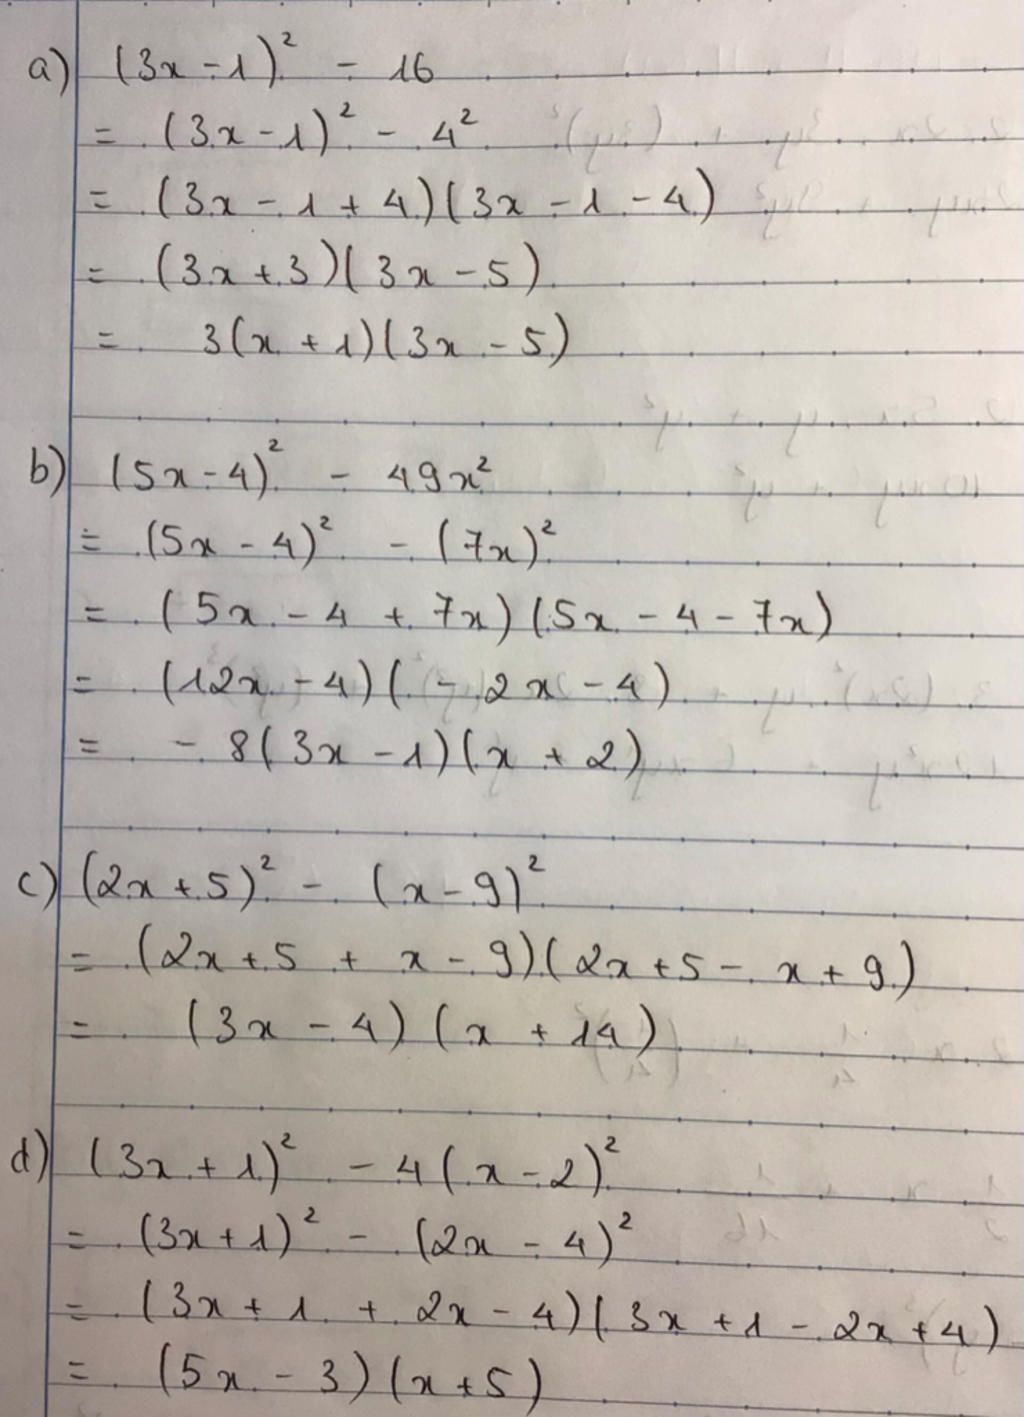 a) (3x - 1)² - 16
= (3x - 1)² - 4²
= (3x - 1 + 4)(3x - 1 - 4)
= (3x + 3)(3x - 5)
= 3(x + 1)(3x - 5)
b) (5x - 4)² - 49x²
= (5x - 4)² - (7x)²
= (5x - 4 + 7x)(5x - 4 - 7x)
= (12x - 4)(- 2x - 4)
= - 8(3x - 1)(x + 2)
c) (2x + 5)² - (x - 9)²
= (2x + 5 + x - 9)(2x + 5 - x + 9)
= (3x - 4)(x + 14)
d) (3x + 1)² - 4(x - 2)²
= (3x + 1)² - (2x - 4)²
= (3x + 1 + 2x - 4)(3x + 1 - 2x + 4)
= (5x - 3)(x + 5)